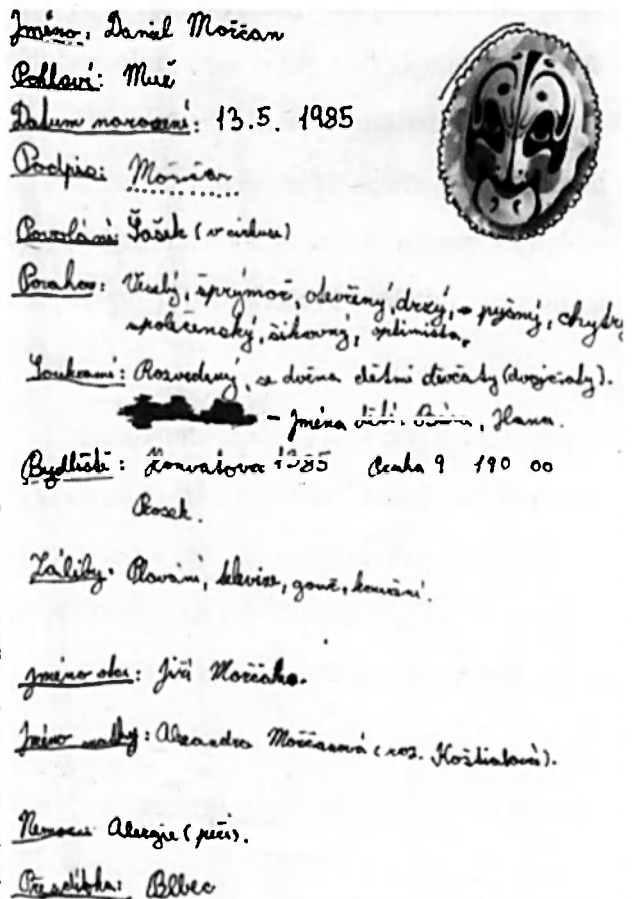 Jméno: Daniel Morčan
Pohlaví: Muž
Datum narození: 13.5. 1985
Podpis: Morčan
Povolání: Šašek (v cirkuse)
Povaha: Veselý, šprýmař, otevřený, drzý, pyšný, chytrý
společenský, šikovný, optimista,
Soukromí: Rozvedený, se dvěma dětmi děvčaty (dvojčaty).
- Jména dětí: Hana.
Bydliště: 1385 Praha 9 190 00
Prosek.
Záliby: Plavání, televize, gauč, kouření.
Jméno otce: Jiří
Jméno matky: (roz.
Nemoce: Alergie (peří).
Přezdívka: Blbec